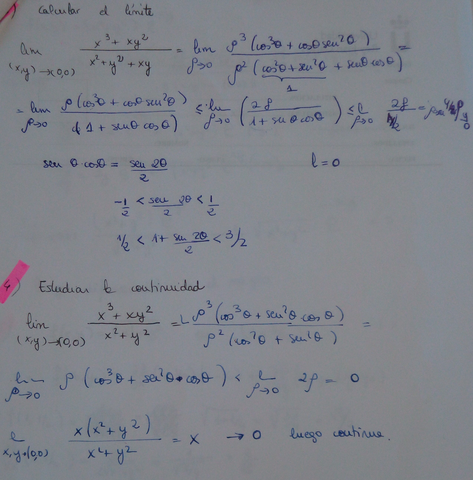 ) Calcular el límite
lim (x,y)→(0,0) x³ + xy² / x² + y² + xy = lim ρ→0 ρ³ (cos³θ + cosθ sen²θ) / ρ² (cos²θ + sen²θ + senθ cosθ) =
1
= lim ρ→0 ρ (cos³θ + cosθ sen²θ) / (1 + senθ cosθ) ≤ lim ρ→0 (2ρ / 1 + senθ cosθ) ≤ l ρ→0 2ρ / 1/2 =
sen θ cosθ = sen 2θ / 2 l = 0
-1/2 < sen 2θ / 2 < 1/2
1/2 < 1 + sen 2θ / 2 < 3/2
) Estudiar la continuidad
lim (x,y)→(0,0) x³ + xy² / x² + y² = L ρ³ (cos³θ + sen²θ cosθ) / ρ² (cos²θ + sen²θ) =
lim ρ→0 ρ (cos³θ + sen²θ cosθ) < l ρ→0 2ρ = 0
l x,y→(0,0) x(x² + y²) / x² + y² = x → 0 luego continua.